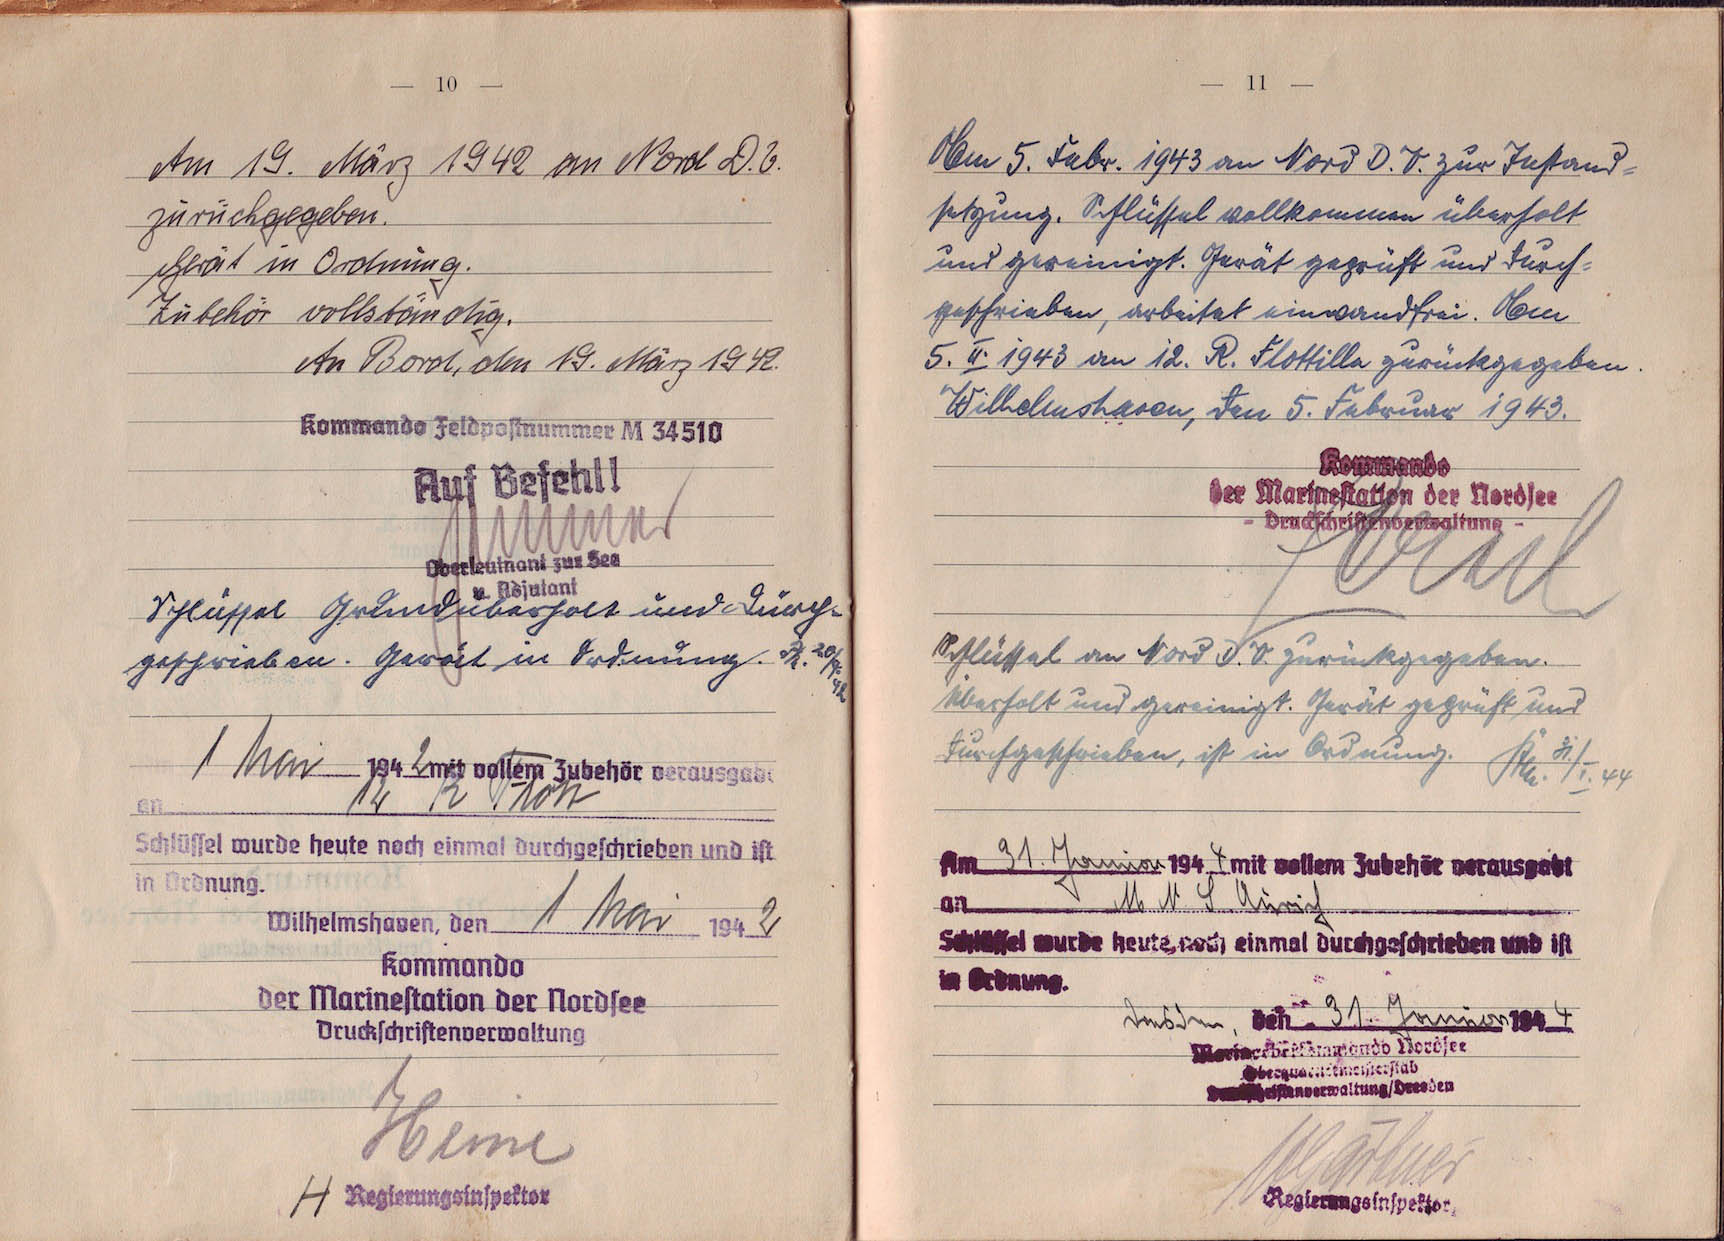 — 10 —
Am 19. März 1942 an Nord D.V.
zurückgegeben.
Gerät in Ordnung.
Zubehör vollständig.
An Bord, den 19. März 1942.
Kommando Feldpostnummer M 34510
Auf Befehl!
Oberleutnant zur See
u. Adjutant
Schlüssel Grundüberholt und durch-
geschrieben. Gerät in Ordnung.
1 Mai 1942 mit vollem Zubehör verausgabt
an 12 R Flott
Schlüssel wurde heute noch einmal durchgeschrieben und ist
in Ordnung.
Wilhelmshaven, den 1 Mai 1942
Kommando
der Marinestation der Nordsee
Druckschriftenverwaltung
Heine
H Regierungsinspektor
— 11 —
Am 5. Febr. 1943 an Nord D.V. zur Instand=
setzung. Schlüssel vollkommen überholt
und gereinigt. Gerät geprüft und durch=
geschrieben, arbeitet einwandfrei. Am
5. II. 1943 an 12. R. Flottilla zurückgegeben.
Wilhelmshaven, den 5. Februar 1943.
Kommando
der Marinestation der Nordsee
- Druckschriftenverwaltung -
Schlüssel an Nord D.V. zurückgegeben.
Überholt und gereinigt. Gerät geprüft und
durchgeschrieben, ist in Ordnung. 31/I. 44
Am 31. Januar 1944 mit vollem Zubehör verausgabt
an M N S Aurich
Schlüssel wurde heute noch einmal durchgeschrieben und ist
in Ordnung.
Dresden, den 31. Januar 1944
Marineoberkommando Nordsee
Oberquartiermeisterstab
Druckschriftenverwaltung/Dresden
Gärtner
Regierungsinspektor